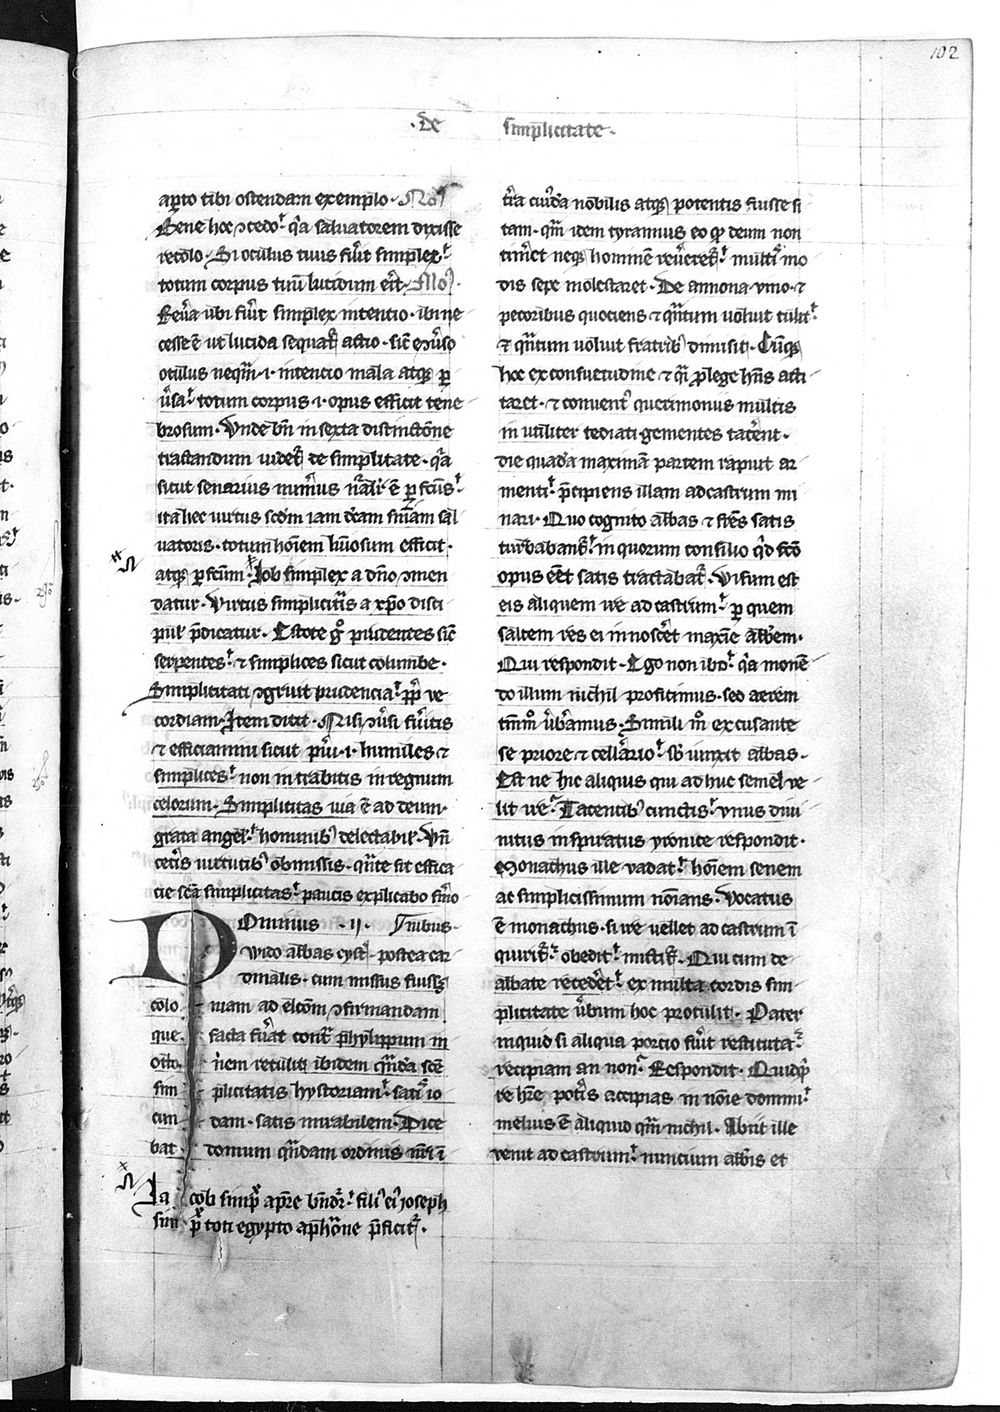 102
·de simplicitate·
aperto tibi ostendam exemplo· No(
Bene hoc concedo· quia salvatorem dixisse
recolo· Si oculus tuus fuerit simplex·
totum corpus tuum lucidum erit· Mo(·
Revera ubi fuerit simplex intentio· ibi ne
cesse est ut lucida sequatur actio· sicut e converso
oculus nequam ·i· intencio mala atque per
versa· totum corpus ·i· opus efficit tene
brosum· Unde bene in sexta distinctione
tractandum videtur de simplicitate· quia
sicut senarius numerus naturaliter est perfectus·
ita hec virtus secundum iam dictam sententiam sal
vatoris· totum hominem luminosum efficit·
atque perfectum· Iob simplex a domino commen
datur· Virtus simplicitatis a christo disci
pulis predicatur· Estote ergo prudentes sicut
serpentes· et simplices sicut columbe·
Simplicitati congruit prudencia· propter ve
cordiam· Item dicit· Nisi conversi fueritis
et efficiamini sicut parvuli ·i· humiles et
simplices· non intrabitis in regnum
celorum· Simplicitas via est ad deum·
grata angelis· hominibus delectabilis· Unde
ceteris virtutibus obmissis· quante sit effica
cie sancta simplicitas· paucis explicabo sermo
Dominus ·II· nibus·
Wido abbas cyst· postea car
dinalis· cum missus fuisset
coloniam ad electionem confirmandam
que facta fuerat contra phylippum in
ottonem retulit ibidem quandam sancte
simplicitatis hystoriam· satis io
cundam· satis mirabilem· Dice
bat domum quandam ordinis nostri in
Iacob simplex a patre benedicitur· filius eius ioseph
simplex toti egypto a pharaone preficitur·
terra cuiusdam nobilis atque potentis fuisse si
tam· quam idem tyrannus eo quod deum non
timeret neque hominem revereretur· multis mo
dis sepe molestaret· De annona vino et
pecoribus quociens et quantum voluit tulit·
et quantum voluit fratribus dimisit· Cumque
hoc ex consuetudine et quasi pro lege habens acti
taret· et conventus querimoniis multis
inutiliter tediati gementes tacerent·
die quadam maximam partem rapuit ar
menti· precipiens illam ad castrum mi
nari· Quo cognito abbas et fratres satis
turbabantur· in quorum consilio quid facto
opus esset satis tractabatur· Visum est
eis aliquem ire ad castrum· per quem
saltem res ei innosceret maxime abbatem·
Qui respondit· Ego non ibo· quia monen
do illum nichil proficimus· sed aerem
tantummodo verberamus· Simili modo excusante
se priore et cellerario· subiunxit abbas·
Est ne hic aliquis qui adhuc semel ve
lit ire· Tacentibus cunctis· unus divi
nitus inspiratus yronice respondit·
Monachus ille vadat· hominem senem
ac simplicissimum nominans· Vocatus
est monachus· si ire vellet ad castrum in
quiritur· obedit· mittitur· Qui cum de
abbate recederet· ex multa cordis sim
plicitate verbum hoc protulit· Pater
inquid si aliqua portio fuerit restituta·
recipiam an non· Respondit· Quidquid
re habere poteris accipias in nomine domini·
melius est aliquid quam nichil· Abiit ille
venit ad castrum· nuncium abbatis et